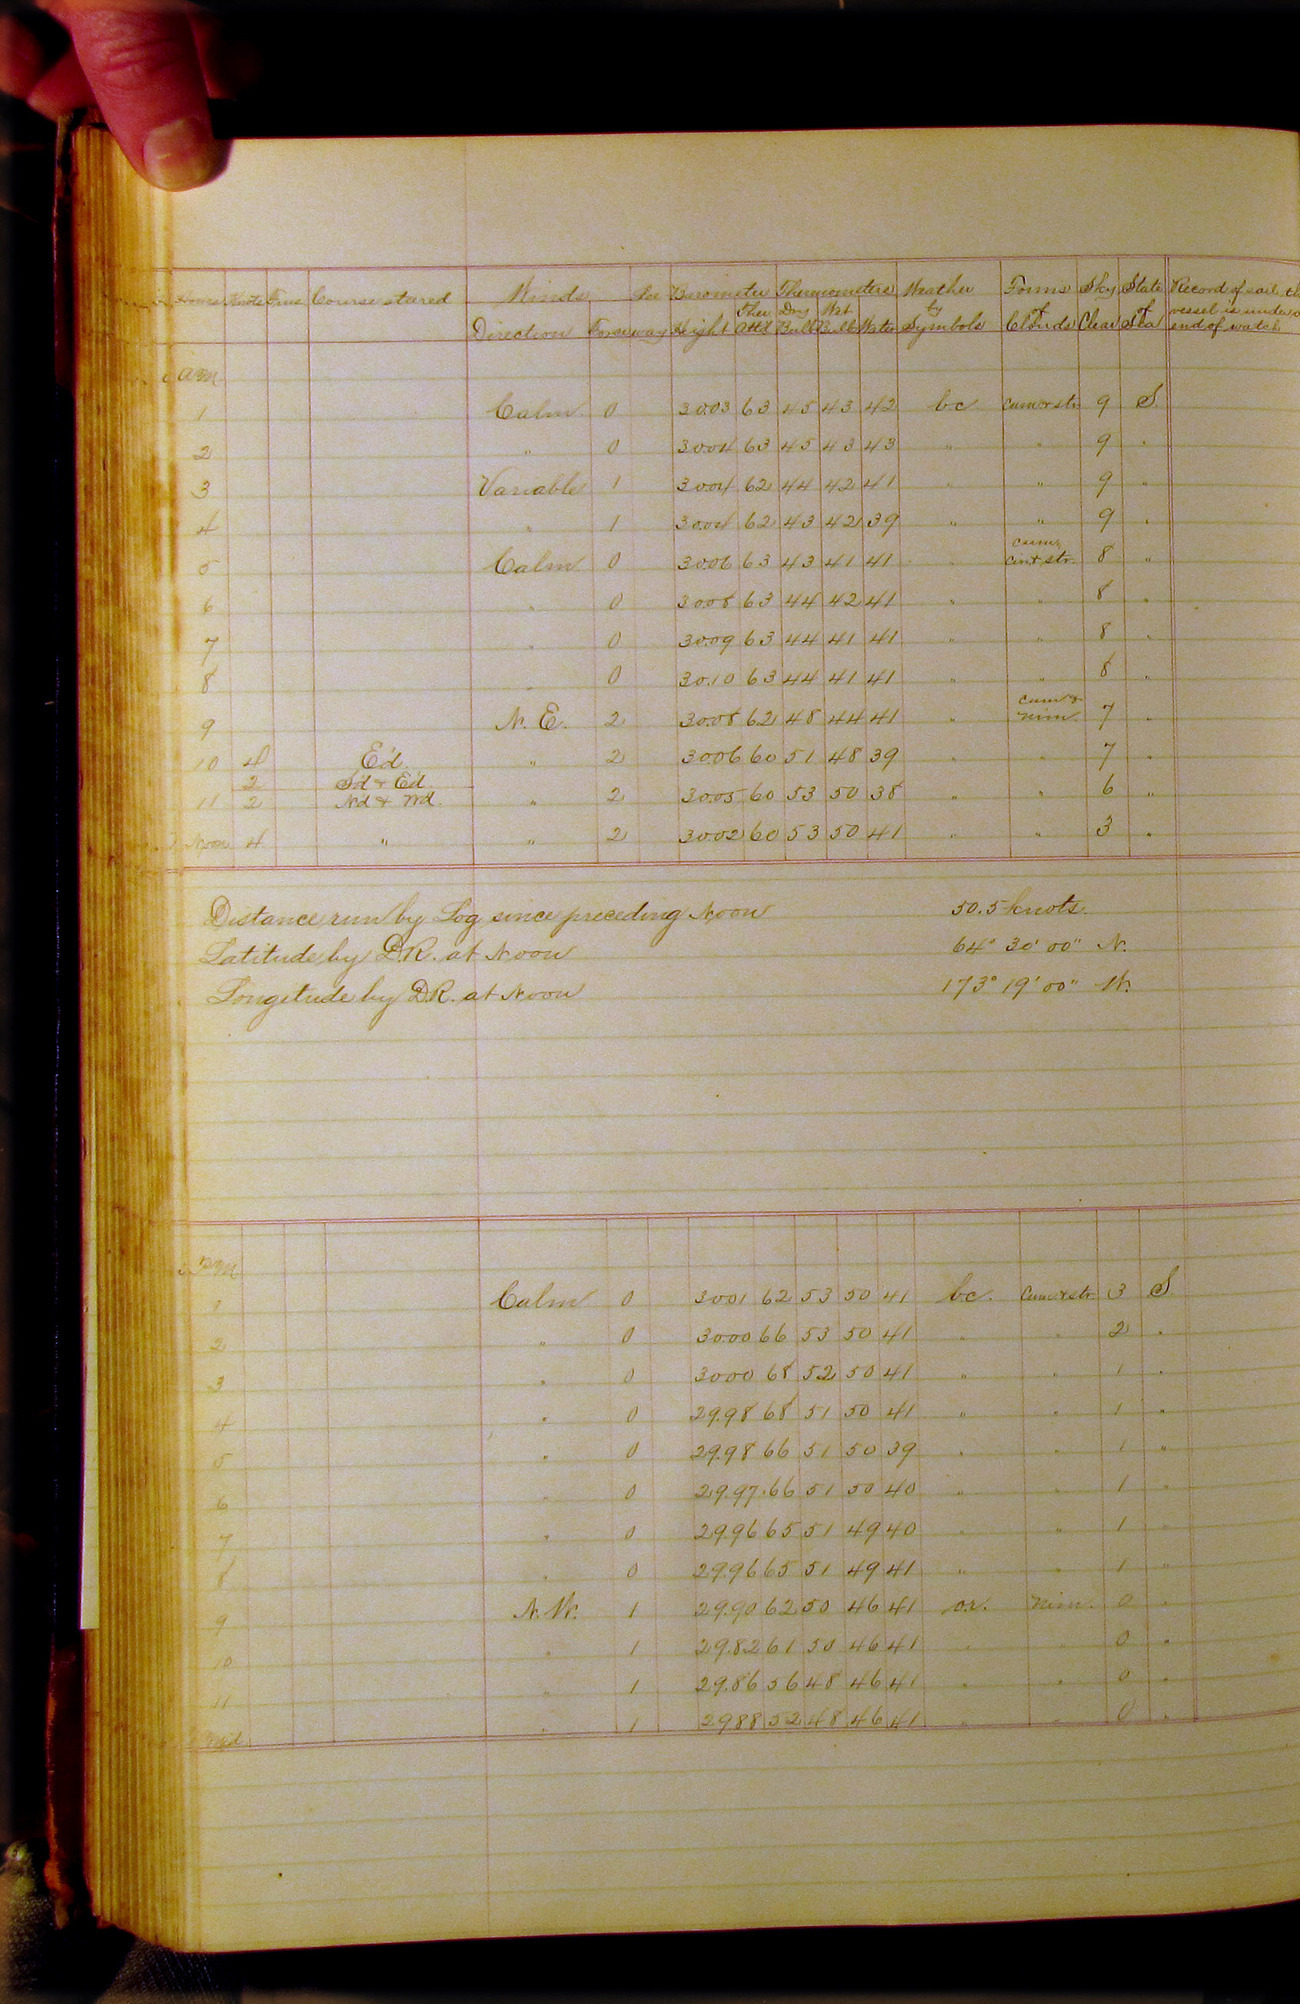 Hours Knots Course steered Winds Lee Barometer Thermometers Weather Forms Sky State Record of sail
Direction Force way Height Ther Att'd Dry Bulb Wet Bulb Water by Symbols of Clouds Clear of Sea vessel is under end of watch
AM
1 Calm 0 30.03 63 45 43 42 bc cum & str 9 S.
2 " 0 30.04 63 45 43 43 " " 9 "
3 Variable 1 30.04 62 44 42 41 " " 9 "
4 " 1 30.04 62 43 42 39 " " 9 "
5 Calm 0 30.06 63 43 41 41 " cum, cir & str. 8 "
6 " 0 30.08 63 44 42 41 " " 8 "
7 " 0 30.09 63 44 41 41 " " 8 "
8 " 0 30.10 63 44 41 41 " " 8 "
9 N. E. 2 30.08 62 48 44 41 " cum & nim 7 "
10 4 E'd " 2 30.06 60 51 48 39 " " 7 "
2 Sd & Ed
11 2 Nd & Wd " 2 30.05 60 53 50 38 " " 6 "
Noon 4 " " 2 30.02 60 53 50 41 " " 3 "
Distance run by Log since preceding Noon 50.5 knots.
Latitude by D.R. at Noon 64° 30' 00" N.
Longitude by D.R. at Noon 173° 19' 00" W.
PM
1 Calm 0 30.01 62 53 50 41 bc. Cum & str. 3 S
2 " 0 30.00 66 53 50 41 " " 2 "
3 " 0 30.00 68 52 50 41 " " 1 "
4 " 0 29.98 68 51 50 41 " " 1 "
5 " 0 29.98 66 51 50 39 " " 1 "
6 " 0 29.97 66 51 50 40 " " 1 "
7 " 0 29.96 65 51 49 40 " " 1 "
8 " 0 29.96 65 51 49 41 " " 1 "
9 N. W. 1 29.90 62 50 46 41 o.r. nim. 0 "
10 " 1 29.82 61 50 46 41 " " 0 "
11 " 1 29.86 56 48 46 41 " " 0 "
Mid " 1 29.88 52 48 46 41 " " 0 "